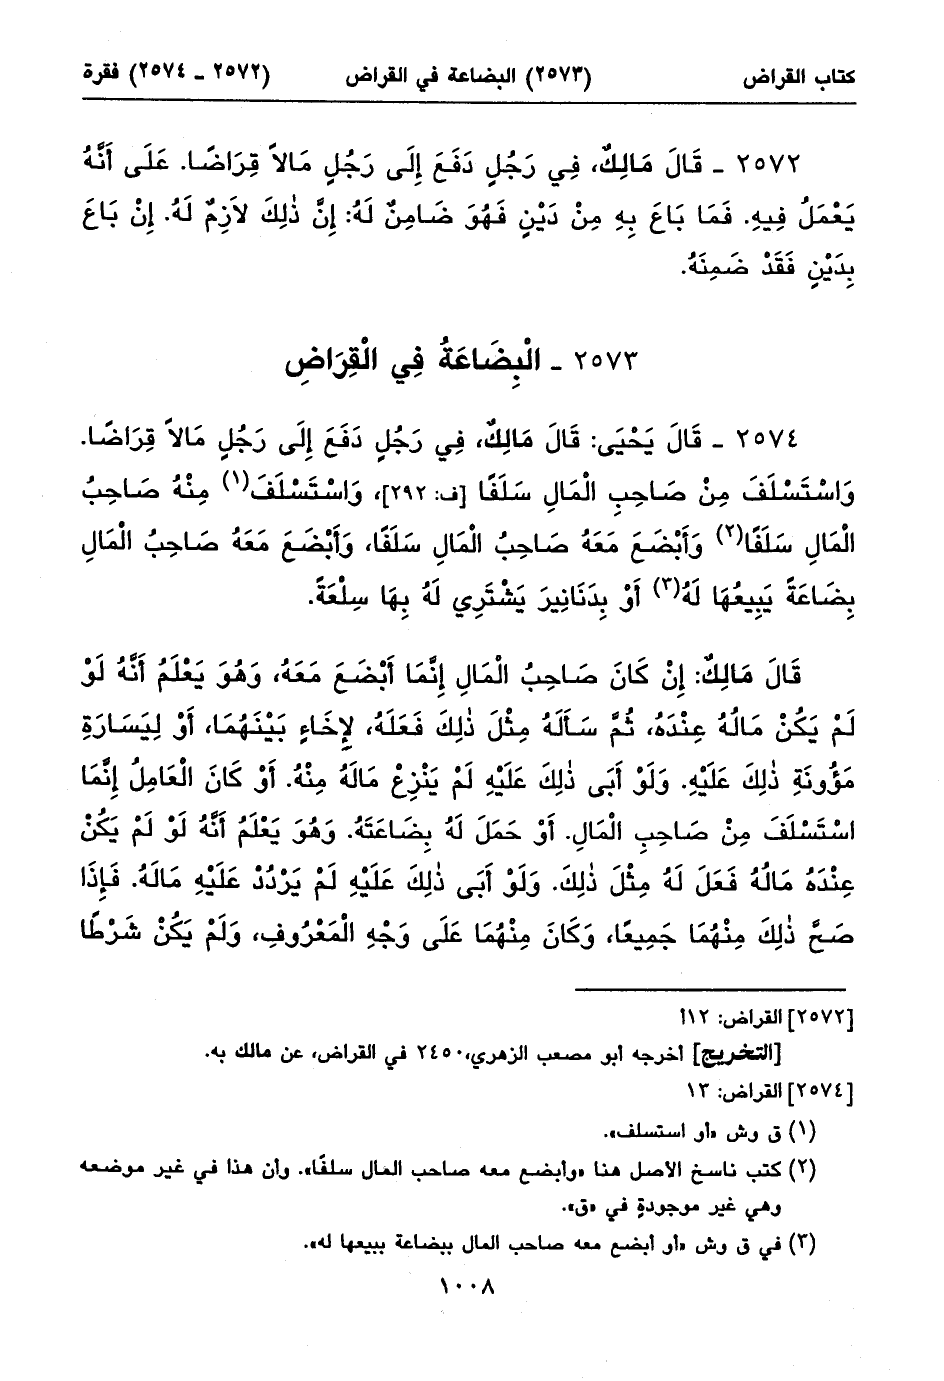 كتاب القراض (٢٥٧٣) البضاعة في القراض (٢٥٧٢ - ٢٥٧٤) فقرة
٢٥٧٢ - قَالَ مَالِكٌ، فِي رَجُلٍ دَفَعَ إِلَى رَجُلٍ مَالاً قِرَاضًا. عَلَى أَنَّهُ
يَعْمَلُ فِيهِ. فَمَا بَاعَ بِهِ مِنْ دَيْنٍ فَهُوَ ضَامِنٌ لَهُ: إِنَّ ذٰلِكَ لاَزِمٌ لَهُ. إِنْ بَاعَ
بِدَيْنٍ فَقَدْ ضَمِنَهُ.
٢٥٧٣ - الْبِضَاعَةُ فِي الْقِرَاضِ
٢٥٧٤ - قَالَ يَحْيَى: قَالَ مَالِكٌ، فِي رَجُلٍ دَفَعَ إِلَى رَجُلٍ مَالاً قِرَاضًا.
وَاسْتَسْلَفَ مِنْ صَاحِبِ الْمَالِ سَلَفًا [ف: ٢٩٢]، وَاسْتَسْلَفَ(١) مِنْهُ صَاحِبُ
الْمَالِ سَلَفًا(٢) وَأَبْضَعَ مَعَهُ صَاحِبُ الْمَالِ سَلَفًا، وَأَبْضَعَ مَعَهُ صَاحِبُ الْمَالِ
بِضَاعَةً يَبِيعُهَا لَهُ(٣) أَوْ بِدَنَانِيرَ يَشْتَرِي لَهُ بِهَا سِلْعَةً.
قَالَ مَالِكٌ: إِنْ كَانَ صَاحِبُ الْمَالِ إِنَّمَا أَبْضَعَ مَعَهُ، وَهُوَ يَعْلَمُ أَنَّهُ لَوْ
لَمْ يَكُنْ مَالُهُ عِنْدَهُ، ثُمَّ سَأَلَهُ مِثْلَ ذٰلِكَ فَعَلَهُ، لِإِخَاءٍ بَيْنَهُمَا، أَوْ لِيَسَارَةِ
مَؤُونَةِ ذٰلِكَ عَلَيْهِ. وَلَوْ أَبَى ذٰلِكَ عَلَيْهِ لَمْ يَنْزِعْ مَالَهُ مِنْهُ. أَوْ كَانَ الْعَامِلُ إِنَّمَا
اسْتَسْلَفَ مِنْ صَاحِبِ الْمَالِ. أَوْ حَمَلَ لَهُ بِضَاعَتَهُ. وَهُوَ يَعْلَمُ أَنَّهُ لَوْ لَمْ يَكُنْ
عِنْدَهُ مَالُهُ فَعَلَ لَهُ مِثْلَ ذٰلِكَ. وَلَوْ أَبَى ذٰلِكَ عَلَيْهِ لَمْ يَرْدُدْ عَلَيْهِ مَالَهُ. فَإِذَا
صَحَّ ذٰلِكَ مِنْهُمَا جَمِيعًا، وَكَانَ مِنْهُمَا عَلَى وَجْهِ الْمَعْرُوفِ، وَلَمْ يَكُنْ شَرْطًا
[٢٥٧٢] القراض: ١٢أ
[التخريج] أخرجه أبو مصعب الزهري، ٢٤٥٠ في القراض، عن مالك به.
[٢٥٧٤] القراض: ١٣
(١) ق وش «أو استسلف».
(٢) كتب ناسخ الأصل هنا «وأبضع معه صاحب المال سلفًا». وأن هذا في غير موضعه
وهي غير موجودةٍ في «ق».
(٣) في ق وش «أو أبضع معه صاحب المال ببضاعة يبيعها له».
١٠٠٨